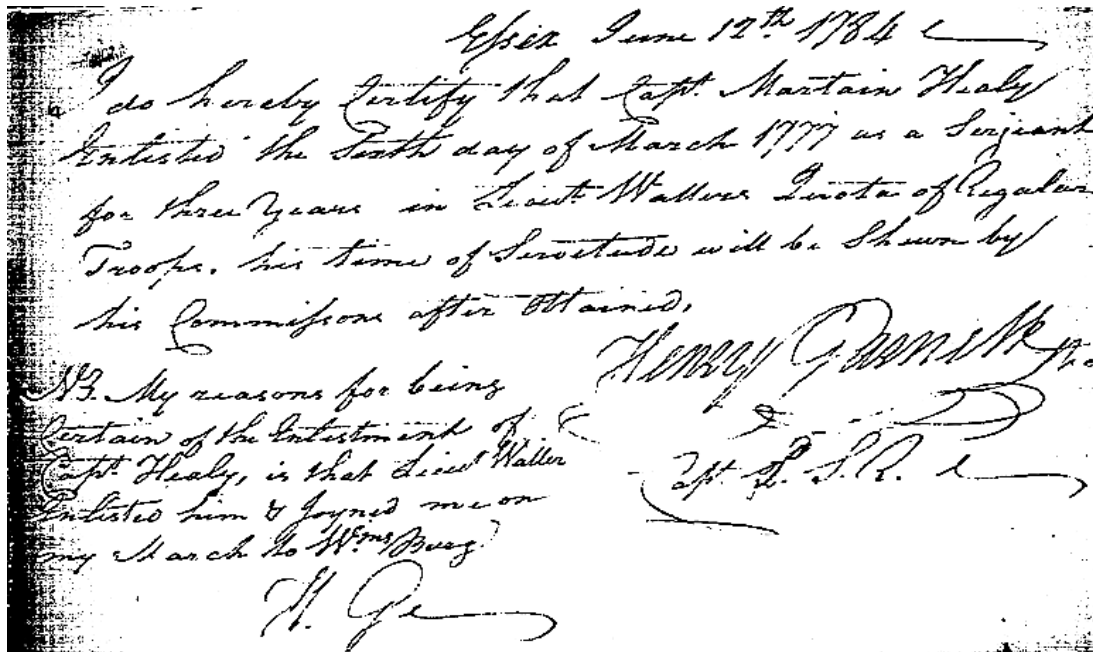 Essex June 12th 1784
I do hereby Certify that Capt. Martain Healy
Entisted the Tenth day of March 1777 as a Serjeant
for three Years in Lieut. Wallers Quota of Regalar
Troops. his time of Servetude will be Shewn by
his Commissons after Ottained.
Henry
Capt. S. R.
NB. My reasons for being
Certain of the Entistment of
Capt. Healy, is that Lieut Waller
Entisted him & Joyned me on
my March to Wms Burg
H. G